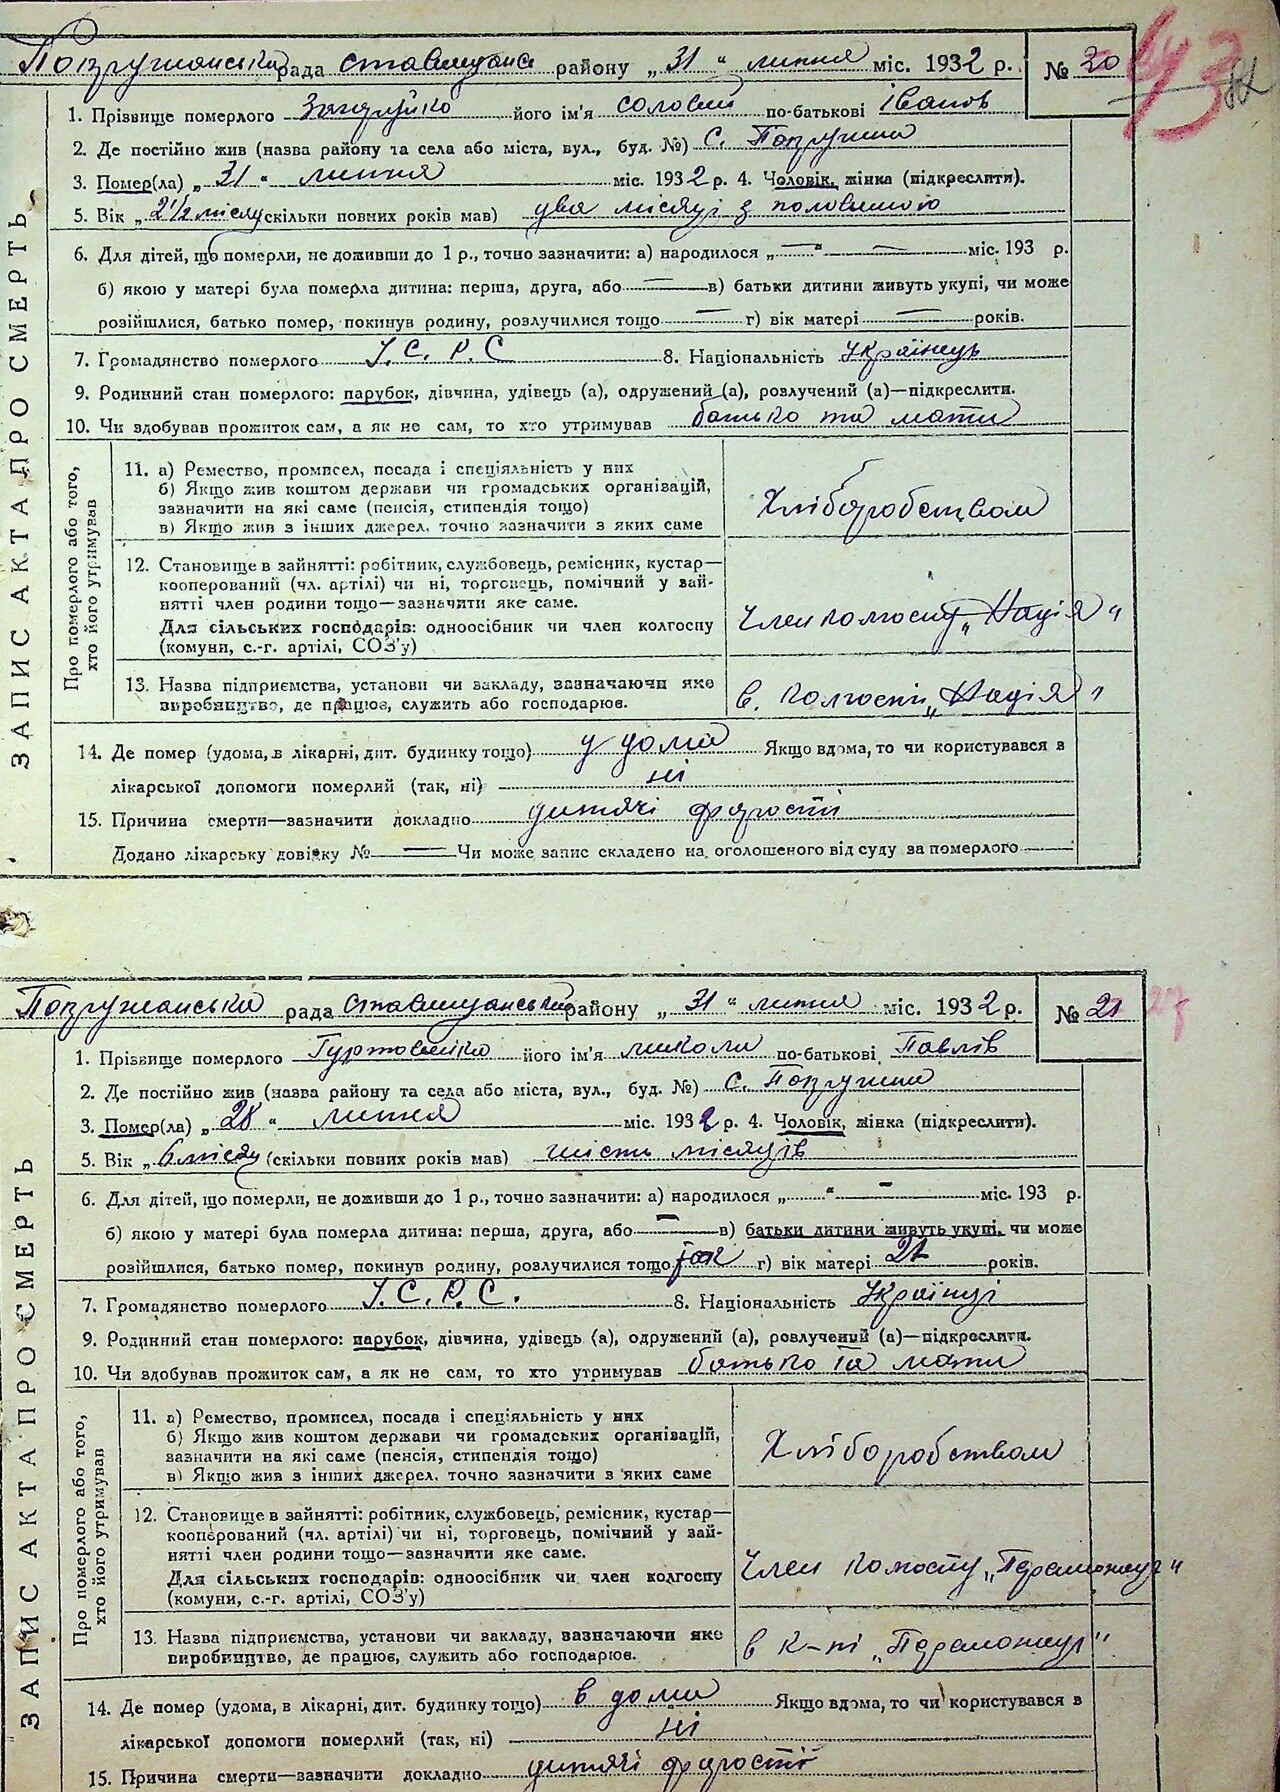 Попружанська рада Ставищансь району „31“ липня міс. 1932 р. № 20
1. Прізвище померлого Загаруйко його ім'я Соловій по-батькові Іванов
2. Де постійно жив (назва району та села або міста, вул., буд. №) с. Попружна
3. Помер(ла) „31“ липня міс. 1932 р. 4. Чоловік, жінка (підкреслити).
5. Вік „2½ місяц скільки повних років мав) два місяці з половиною
6. Для дітей, що померли, не доживши до 1 р., точно зазначити: а) народилося „—“ — міс. 193 р.
б) якою у матері була померла дитина: перша, друга, або — в) батьки дитини живуть укупі, чи може
розійшлися, батько помер, покинув родину, розлучилися тощо — г) вік матері — років.
7. Громадянство померлого У.С.Р.С 8. Національність Українець
9. Родинний стан померлого: парубок, дівчина, удівець (а), одружений (а), розлучений (а)—підкреслити.
10. Чи здобував прожиток сам, а як не сам, то хто утримував батько та мати
ЗАПИС АКТА ПРО СМЕРТЬ
Про померлого або того,
хто його утримував
11. а) Ремество, промисел, посада і спеціяльність у них
б) Якщо жив коштом держави чи громадських організацій,
зазначити на які саме (пенсія, стипендія тощо)
в) Якщо жив з інших джерел, точно зазначити з яких саме
Хліборобством
12. Становище в зайнятті: робітник, службовець, ремісник, кустар—
кооперований (чл. артілі) чи ні, торговець, помічний у зай-
нятті член родини тощо—зазначити яке саме.
Для сільських господарів: одноосібник чи член колгоспу
(комуни, с.-г. артілі, СОЗ'у)
Член колгоспу „Надія“
13. Назва підприємства, установи чи закладу, зазначаючи яке
виробництво, де працює, служить або господарює.
в. колгоспі „Надія“
14. Де помер (удома, в лікарні, дит. будинку тощо) у дома Якщо вдома, то чи користувався в
лікарської допомоги померлий (так, ні) ні
15. Причина смерти—зазначити докладно дитячі
Додано лікарську довідку № — Чи може запис складено на оголошеного від суду за померлого —
Попружанська рада Ставищанський району „31“ липня міс. 1932 р. № 21
1. Прізвище померлого Гуртовенко його ім'я Микола по-батькові Павлів
2. Де постійно жив (назва району та села або міста, вул., буд. №) с. Попружна
3. Помер(ла) „28“ липня міс. 1932 р. 4. Чоловік, жінка (підкреслити).
5. Вік „6 місяц (скільки повних років мав) шість місяців
6. Для дітей, що померли, не доживши до 1 р., точно зазначити: а) народилося „ “ — міс. 193 р.
б) якою у матері була померла дитина: перша, друга, або — в) батьки дитини живуть укупі, чи може
розійшлися, батько помер, покинув родину, розлучилися тощо г) вік матері 21 років.
7. Громадянство померлого У.С.Р.С. 8. Національність Українці
9. Родинний стан померлого: парубок, дівчина, удівець (а), одружений (а), розлучений (а)—підкреслити.
10. Чи здобував прожиток сам, а як не сам, то хто утримував батько та мати
ЗАПИС АКТА ПРО СМЕРТЬ
Про померлого або того,
хто його утримував
11. а) Ремество, промисел, посада і спеціяльність у них
б) Якщо жив коштом держави чи громадських організацій,
зазначити на які саме (пенсія, стипендія тощо)
в) Якщо жив з інших джерел, точно зазначити з яких саме
Хліборобством
12. Становище в зайнятті: робітник, службовець, ремісник, кустар—
кооперований (чл. артілі) чи ні, торговець, помічний у зай-
нятті член родини тощо—зазначити яке саме.
Для сільських господарів: одноосібник чи член колгоспу
(комуни, с.-г. артілі, СОЗ'у)
Член колгоспу „Переможець“
13. Назва підприємства, установи чи закладу, зазначаючи яке
виробництво, де працює, служить або господарює.
в к-пі „Переможець“
14. Де помер (удома, в лікарні, дит. будинку тощо) в дома Якщо вдома, то чи користувався в
лікарської допомоги померлий (так, ні) ні
15. Причина смерти—зазначити докладно дитячі